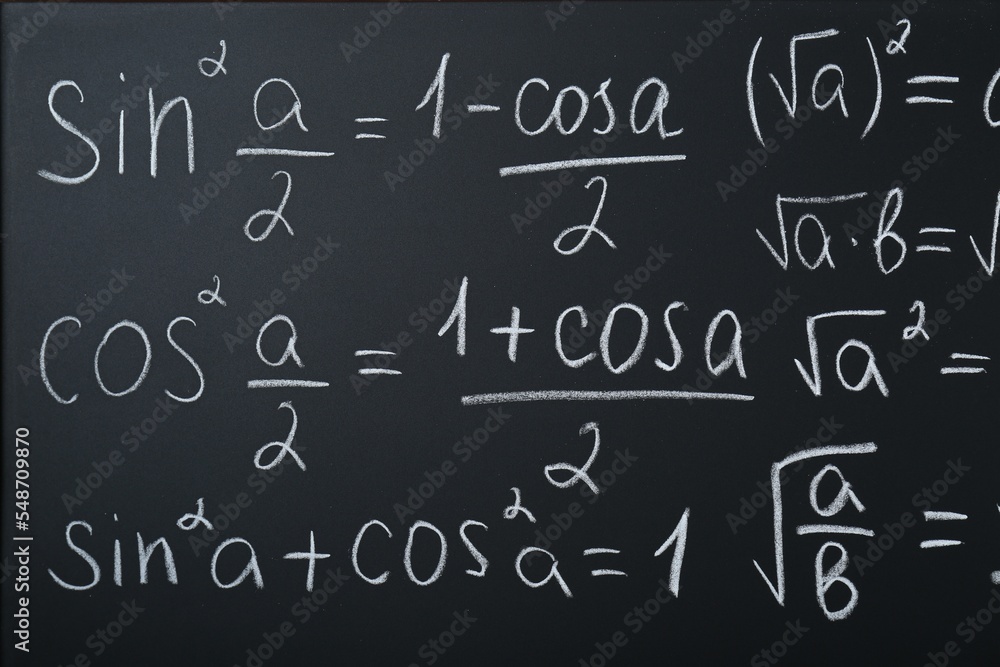 sin² a/2 = 1-cosa/2
cos² a/2 = 1+cosa/2
sin²a + cos²a = 1
(√a)² =
√a·b = √
√a² =
√a/b =
Adobe Stock | #548709870